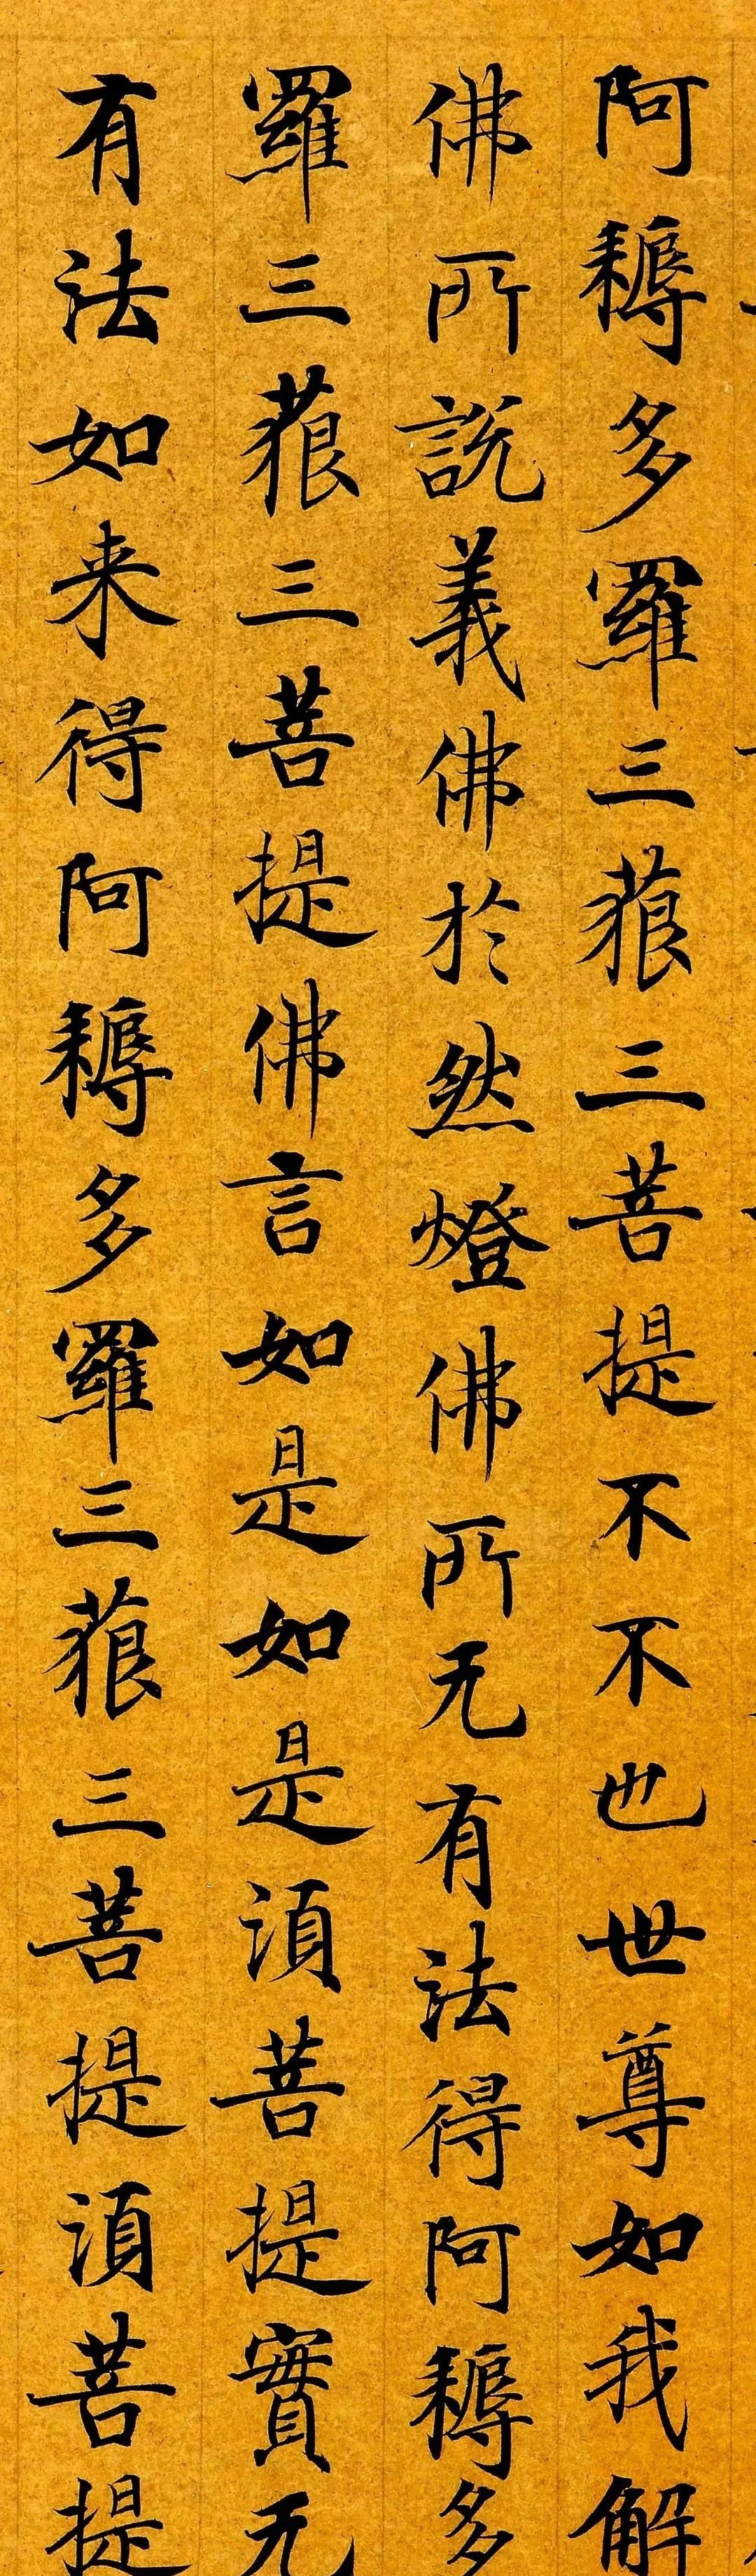 阿耨多羅三藐三菩提不不也世尊如我解
佛所說義佛於然燈佛所无有法得阿耨多
羅三藐三菩提佛言如是如是湏菩提實无
有法如来得阿耨多羅三藐三菩提湏菩提